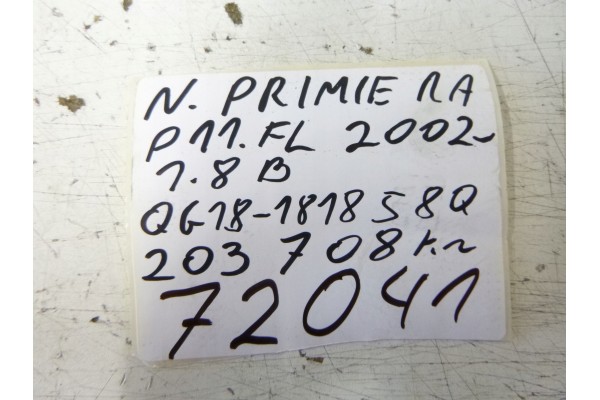 N. PRIMIERA
P11.FL 2002r
1.8 B
QG18-181858Q
203 708 km
72041